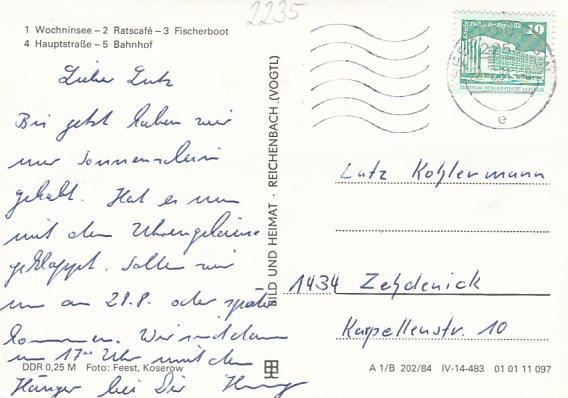 2235
1 Wochninsee – 2 Ratscafé – 3 Fischerboot
4 Hauptstraße – 5 Bahnhof
Lieber Lutz
Bis jetzt haben wir
nur Sonnenschein
gehabt. Hat es nun
mit dem
geklappt. Sollen wir
nun am 28.8. oder später
kommen. Wir sind dann
um 17°° Uhr mit dem
Hänger bei Dir
BILD UND HEIMAT · REICHENBACH (VOGTL)
10
e
Lutz Kohlermann
1434 Zehdenick
Kappellenstr. 10
DDR 0,25 M Foto: Feest, Koserow
A 1/B 202/84 IV-14-483 01 01 11 097